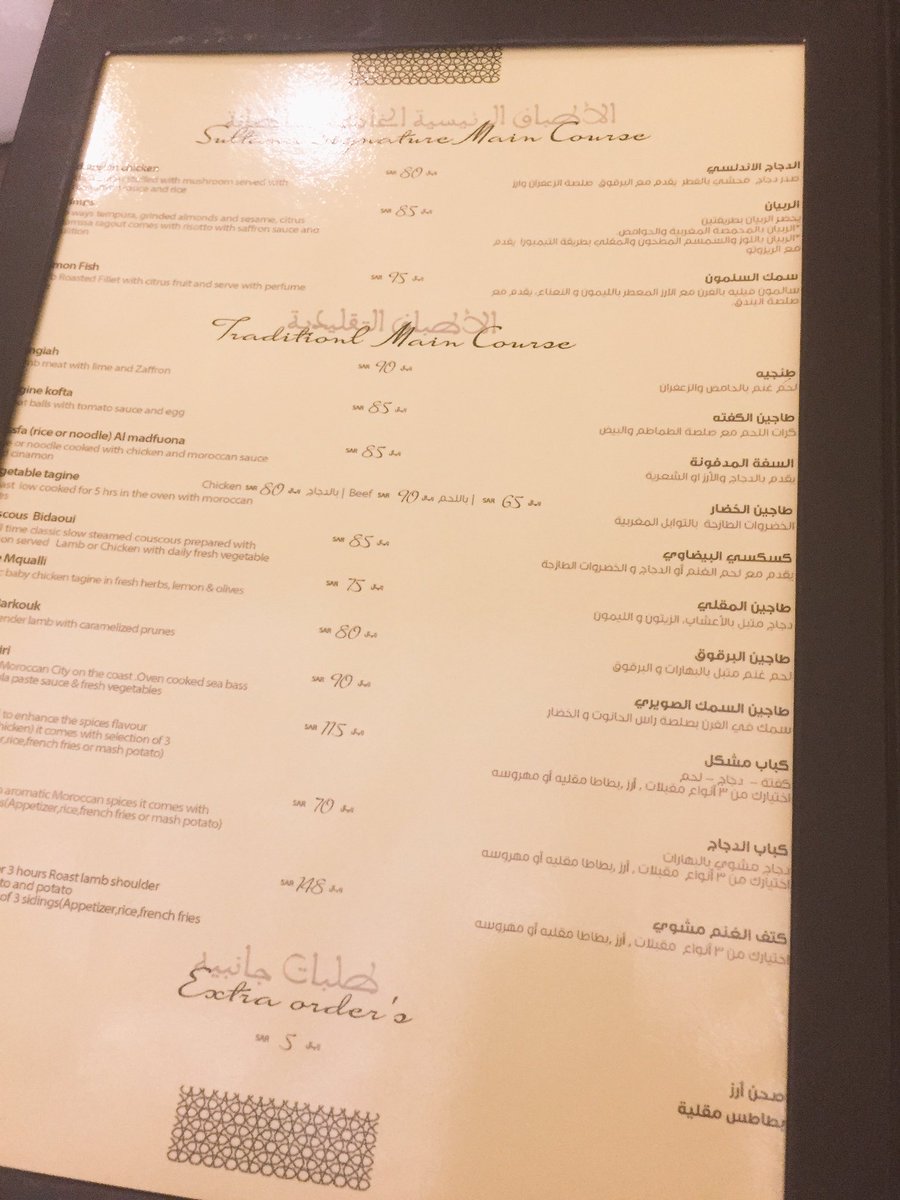 الأطباق الرئيسية
Sultana Signature Main Course
chicken
stuffed with mushroom served with
sauce and rice
SAR 80 ريال
الدجاج الاندلسي
صدر دجاج محشي بالفطر يقدم مع البرقوق صلصة الزعفران وارز
ways tempura, grinded almonds and sesame, citrus
ragout comes with risotto with saffron sauce and
SAR 85 ريال
الربيان
يحضر الربيان بطريقتين
*الربيان بالمحمصة المغربية والحوامض
*الربيان باللوز والسمسم المطحون والمقلي بطريقة التيمبورا يقدم
مع الريزوتو
mon Fish
Roasted Fillet with citrus fruit and serve with perfume
SAR 95 ريال
سمك السلمون
سالمون فيليه بالفرن مع الارز المعطر بالليمون و النعناع، يقدم مع
صلصة البندق.
الأطباق التقليدية
Traditionl Main Course
ngiah
mb meat with lime and Zaffron
SAR 90 ريال
طنجيه
لحم غنم بالحامض والزعفران
gine kofta
at balls with tomato sauce and egg
SAR 85 ريال
طاجين الكفته
كرات اللحم مع صلصة الطماطم والبيض
sfa (rice or noodle) Al madfuona
e or noodle cooked with chicken and moroccan sauce
cinamon
SAR 85 ريال
السفة المدفونة
يقدم بالدجاج والأرز او الشعرية
getable tagine
ast low cooked for 5 hrs in the oven with moroccan
es
Chicken SAR 80 ريال بالدجاج | Beef SAR 90 ريال باللحم | SAR 65 ريال
طاجين الخضار
الخضروات الطازجة بالتوابل المغربية
scous Bidaoui
l time classic slow steamed couscous prepared with
on served Lamb or Chicken with daily fresh vegetable
SAR 85 ريال
كسكسي البيضاوي
يقدم مع لحم الغنم أو الدجاج و الخضروات الطازجة
e Mqualli
c baby chicken tagine in fresh herbs, lemon & olives
SAR 75 ريال
طاجين المقلي
دجاج متبل بالأعشاب، الزيتون و الليمون
Barkouk
ender lamb with caramelized prunes
SAR 80 ريال
طاجين البرقوق
لحم غنم متبل بالبهارات و البرقوق
iri
Moroccan City on the coast .Oven cooked sea bass
la paste sauce & fresh vegetables
SAR 90 ريال
طاجين السمك الصويري
سمك في الفرن بصلصة راس الحانوت و الخضار
to enhance the spices flavour
hicken) it comes with selection of 3
r,rice,french fries or mash potato)
SAR 115 ريال
كباب مشكل
كفتة - دجاج - لحم
اختيارك من ٣ أنواع مقبلات , أرز ,بطاطا مقليه أو مهروسه
n aromatic Moroccan spices it comes with
s(Appetizer,rice,french fries or mash potato)
SAR 70 ريال
كباب الدجاج
دجاج مشوي بالبهارات
اختيارك من ٣ أنواع مقبلات , أرز ,بطاطا مقليه أو مهروسه
r 3 hours Roast lamb shoulder
to and potato
of 3 sidings(Appetizer,rice,french fries
SAR 148 ريال
كتف الغنم مشوي
اختيارك من ٣ أنواع مقبلات , أرز ,بطاطا مقليه أو مهروسه
طلبات جانبية
Extra order's
SAR 5 ريال
صحن أرز
بطاطس مقلية